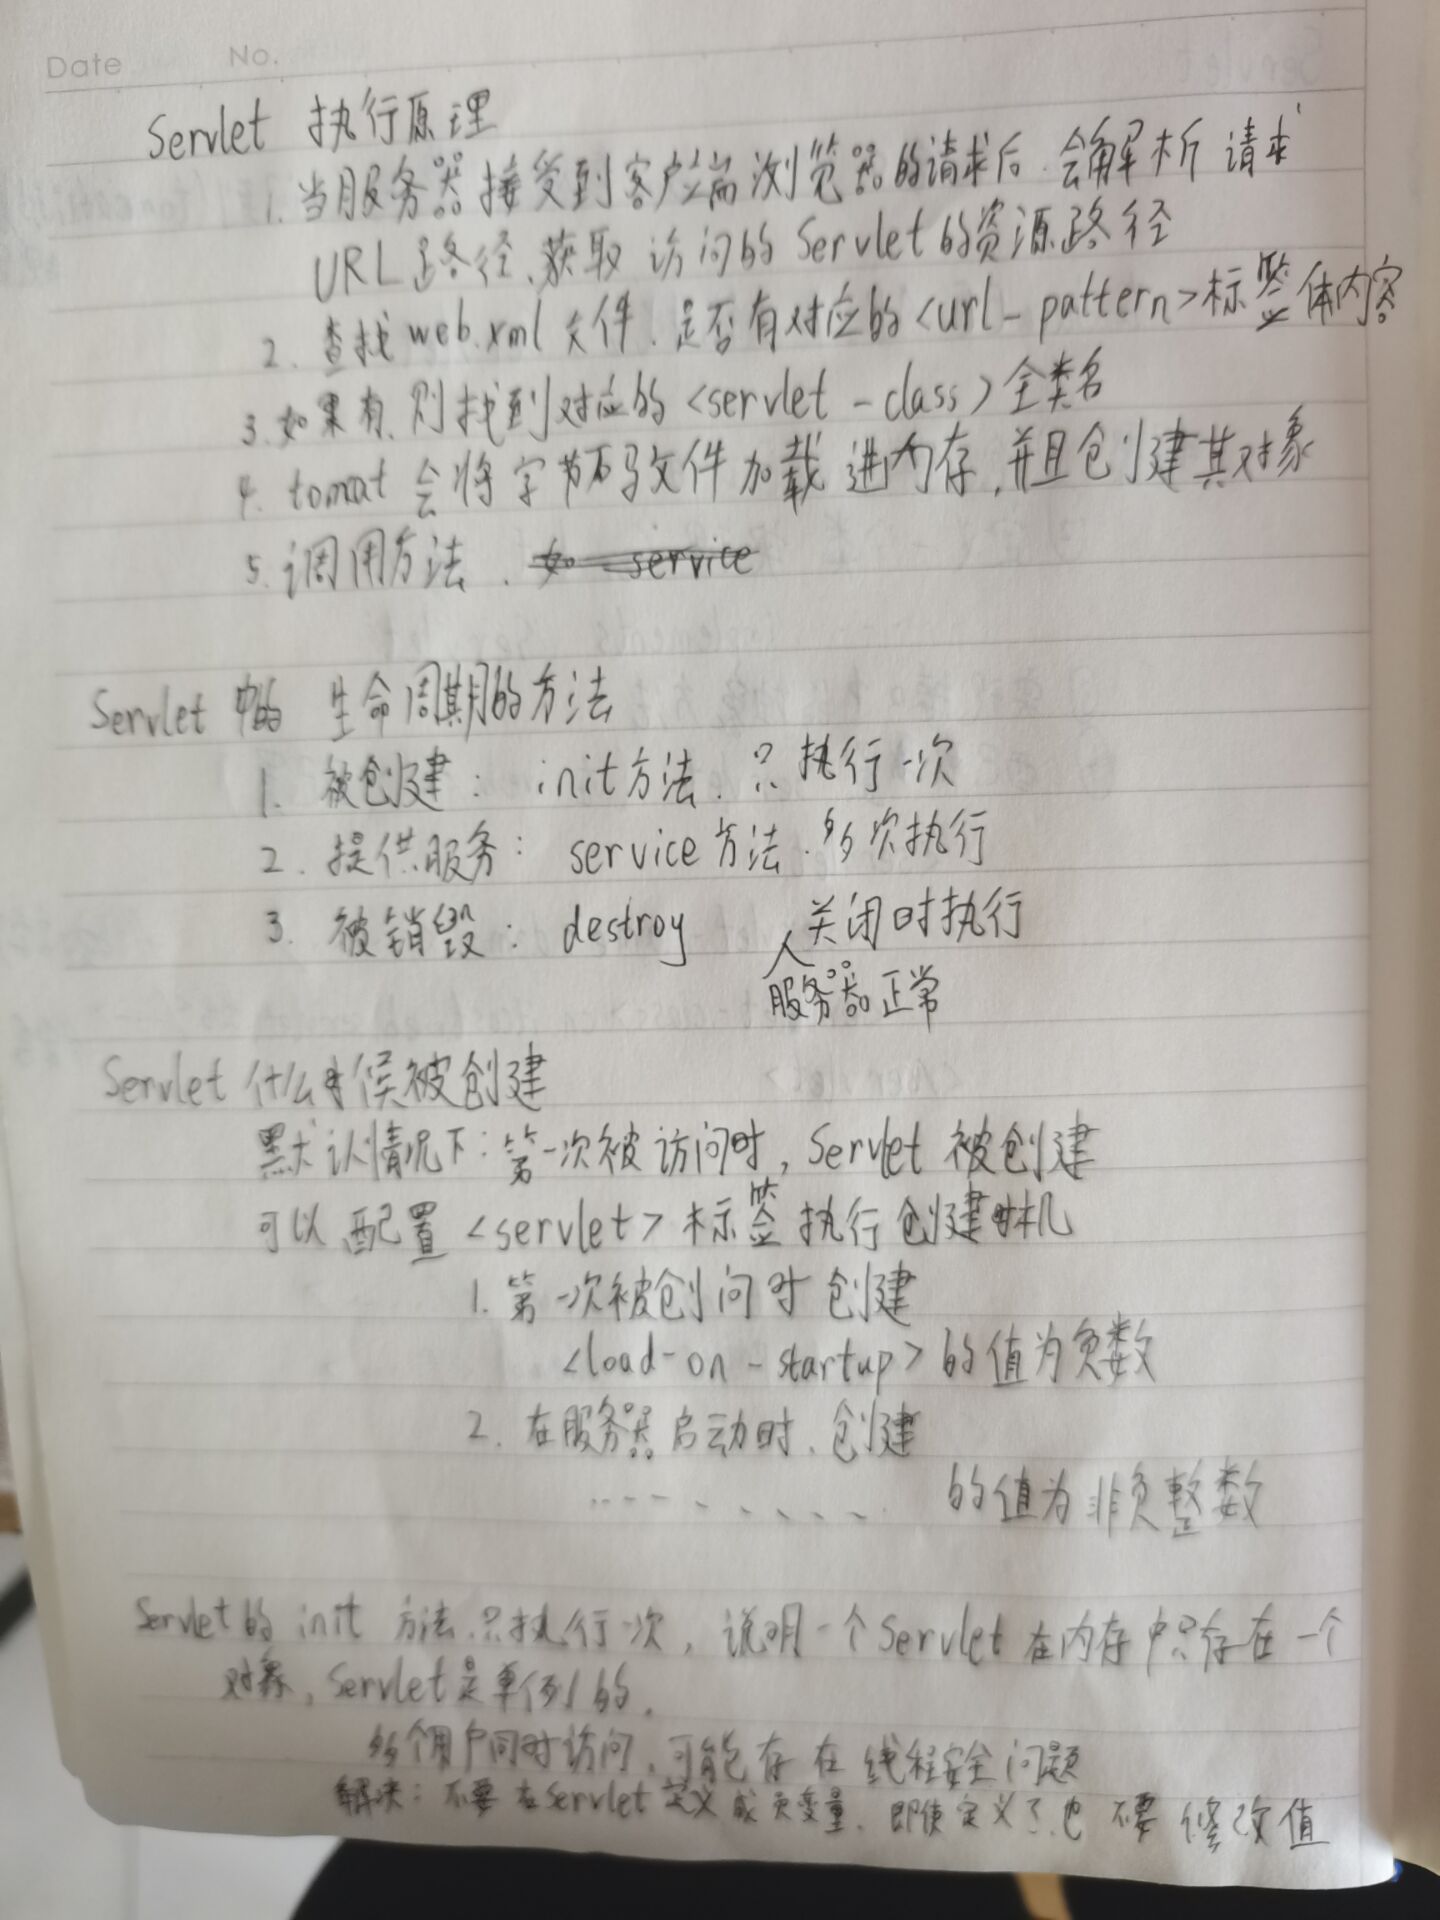 Date No.
Servlet 执行原理
1. 当服务器接受到客户端浏览器的请求后.会解析 请求
URL路径,获取 访问的 Servlet的资源路径
2. 查找 web.xml 文件.是否有对应的<url-pattern>标签体内容
3. 如果有,则找到对应的<servlet-class>全类名
4. tomat 会将字节码文件加载 进内存,并且创建其对象
5. 调用方法. 如 service
Servlet 中的 生命周期的方法
1. 被创建: init方法.只执行一次
2. 提供服务: service方法.多次执行
3. 被销毁: destroy 关闭时执行
服务器正常
Servlet 什么时候被创建
默认情况下:第一次被访问时,Servlet 被创建
可以 配置 <servlet>标签执行创建时机
1. 第一次被创问时 创建
<load-on-startup>的值为负数
2. 在服务器启动时、创建
的值为非负整数
Servlet的 init 方法.只执行一次,说明一个Servlet在内存中只存在一个
对象,Servlet是单例的.
多个用户同时访问,可能存在线程安全问题
解决:不要在Servlet定义成员变量.即使定义了.也 不要 修改值